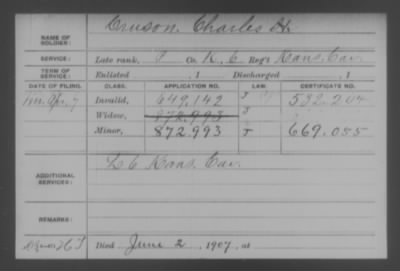 NAME OF SOLDIER: Cruson, Charles H.
SERVICE: Late rank, P Co. K, 6 Reg't Kans. Cav.
TERM OF SERVICE: Enlisted , 1 Discharged , 1
DATE OF FILING. CLASS. APPLICATION NO. LAW. CERTIFICATE NO.
Apr. 7 Invalid, 649,142 J 532,204
Widow, 872,993 J
Minor, 872,993 J 669,055
ADDITIONAL SERVICES: L 6 Kans. Cav.
REMARKS:
Died June 2, 1907, at